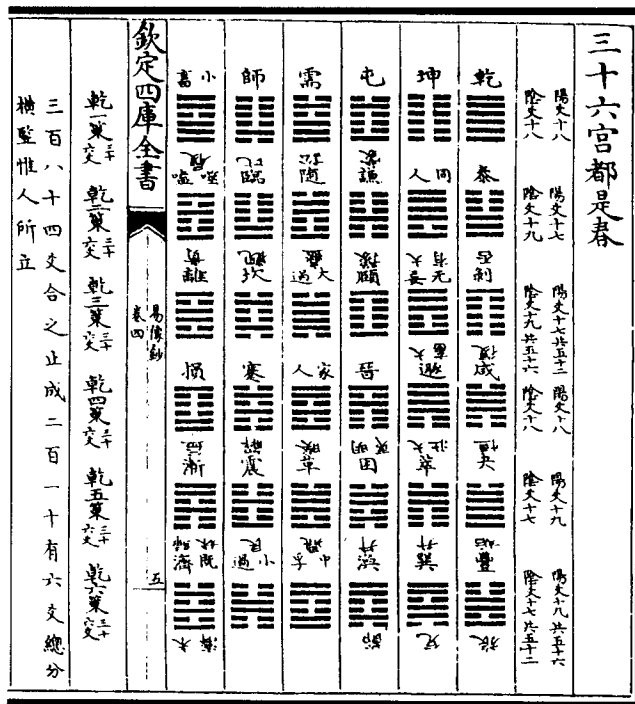 三十六宫都是春
陽爻十八 陰爻十八
陽爻十七 陰爻十九
陽爻十七共五十二 陰爻十九共五十六
陽爻十八 陰爻十八
陽爻十九 陰爻十七
陽爻十九共五十六 陰爻十七共五十二
乾 泰 否 剝 復 咸 恒 夬 姤 豐 旅
坤 同人 大有 无妄 大畜 遯 大壯 萃 升 巽 兌
屯 蒙 謙 豫 頤 晉 明夷 困 井 渙 節
需 訟 隨 蠱 大過 家人 睽 革 鼎 中孚
師 比 臨 觀 坎 蹇 解 震 艮 小過
小畜 履 噬嗑 賁 離 損 益 漸 歸妹 既濟 未濟
欽定四庫全書
易像鈔
卷四
五
乾一策三十六爻 乾二策三十六爻 乾三策三十六爻 乾四策三十六爻 乾五策三十六爻 乾六策三十六爻
三百八十四爻合之止成二百一十有六爻總分
横豎惟人所立